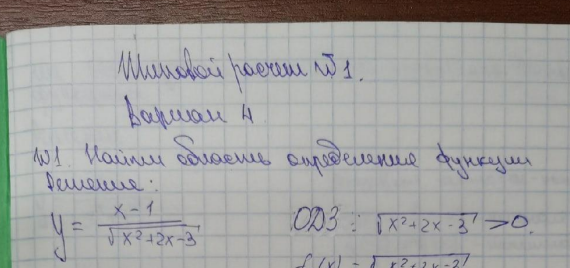 Типовой расчет №1.
Вариан 4
№1. Найти область определение функции
Решение:
y = x-1 / √x²+2x-3 ОДЗ : √x²+2x-3 >0.
f(x) = √x²+2x-3